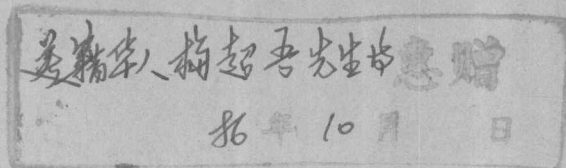 美籍华人梅超吾先生惠赠
86年10月 日